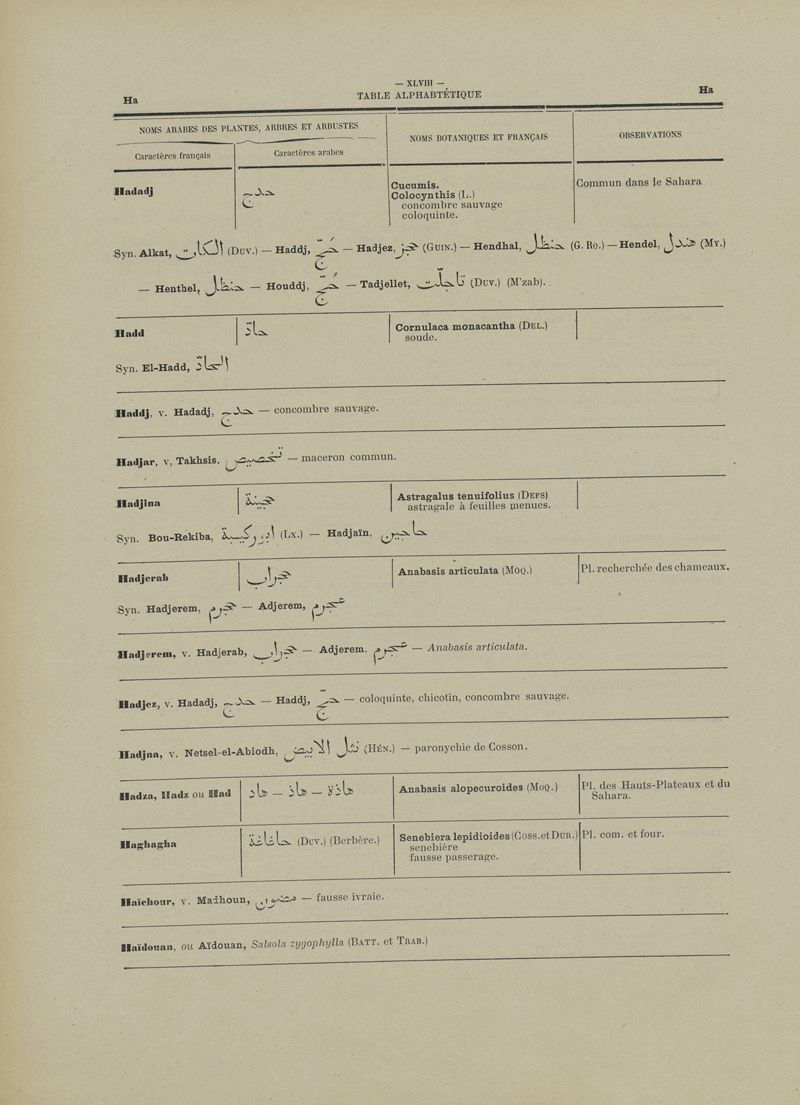 — XLVIII —
Ha
TABLE ALPHABTÉTIQUE
Ha
NOMS ARABES DES PLANTES, ARBRES ET ARBUSTES
NOMS BOTANIQUES ET FRANÇAIS
OBSERVATIONS
Caractères français
Caractères arabes
Hadadj
حدج
Cucumis.
Colocynthis (L.)
concombre sauvage
coloquinte.
Commun dans le Sahara
Syn. Alkat, (Duv.) — Haddj, حجّ — Hadjez, حجز (Guin.) — Hendhal, حنظل (G. Ro.) — Hendel, هندل (My.)
— Henthel, حنظل — Houddj, — Tadjellet, (Duv.) (M'zab).
Hadd
حادّ
Cornulaca monacantha (Del.)
soude.
Syn. El-Hadd, الحادّ
Haddj, v. Hadadj, حدج — concombre sauvage.
Hadjar, v, Takhsis. — maceron commun.
Hadjina
حجينة
Astragalus tenuifolius (Defs)
astragale à feuilles menues.
Syn. Bou-Rekiba, (Lx.) — Hadjaïn,
Hadjerab
حجراب
Anabasis articulata (Moq.)
Pl. recherchée des chameaux.
Syn. Hadjerem, حجرم — Adjerem, عجرم
Hadjerem, v. Hadjerab, حجراب — Adjerem. عجرم — Anabasis articulata.
Hadjez, v. Hadadj, حدج — Haddj, حجّ — coloquinte, chicotin, concombre sauvage.
Hadjna, v. Netsel-el-Abiodh, نثل الابيض (Hén.) — paronychie de Cosson.
Hadza, Hadz ou Had
هاذة — هاذ — هاد
Anabasis alopecuroides (Moq.)
Pl. des Hauts-Plateaux et du
Sahara.
Haghagha
حاغاغة (Duv.) (Berbère.)
Senebiera lepidioides (Coss. et Dur.)
senebière
fausse passerage.
Pl. com. et four.
Haïchour, v. Madhoun, — fausse ivraie.
Haïdouan, ou Aïdouan, Salsola zygophylla (Batt. et Trab.)